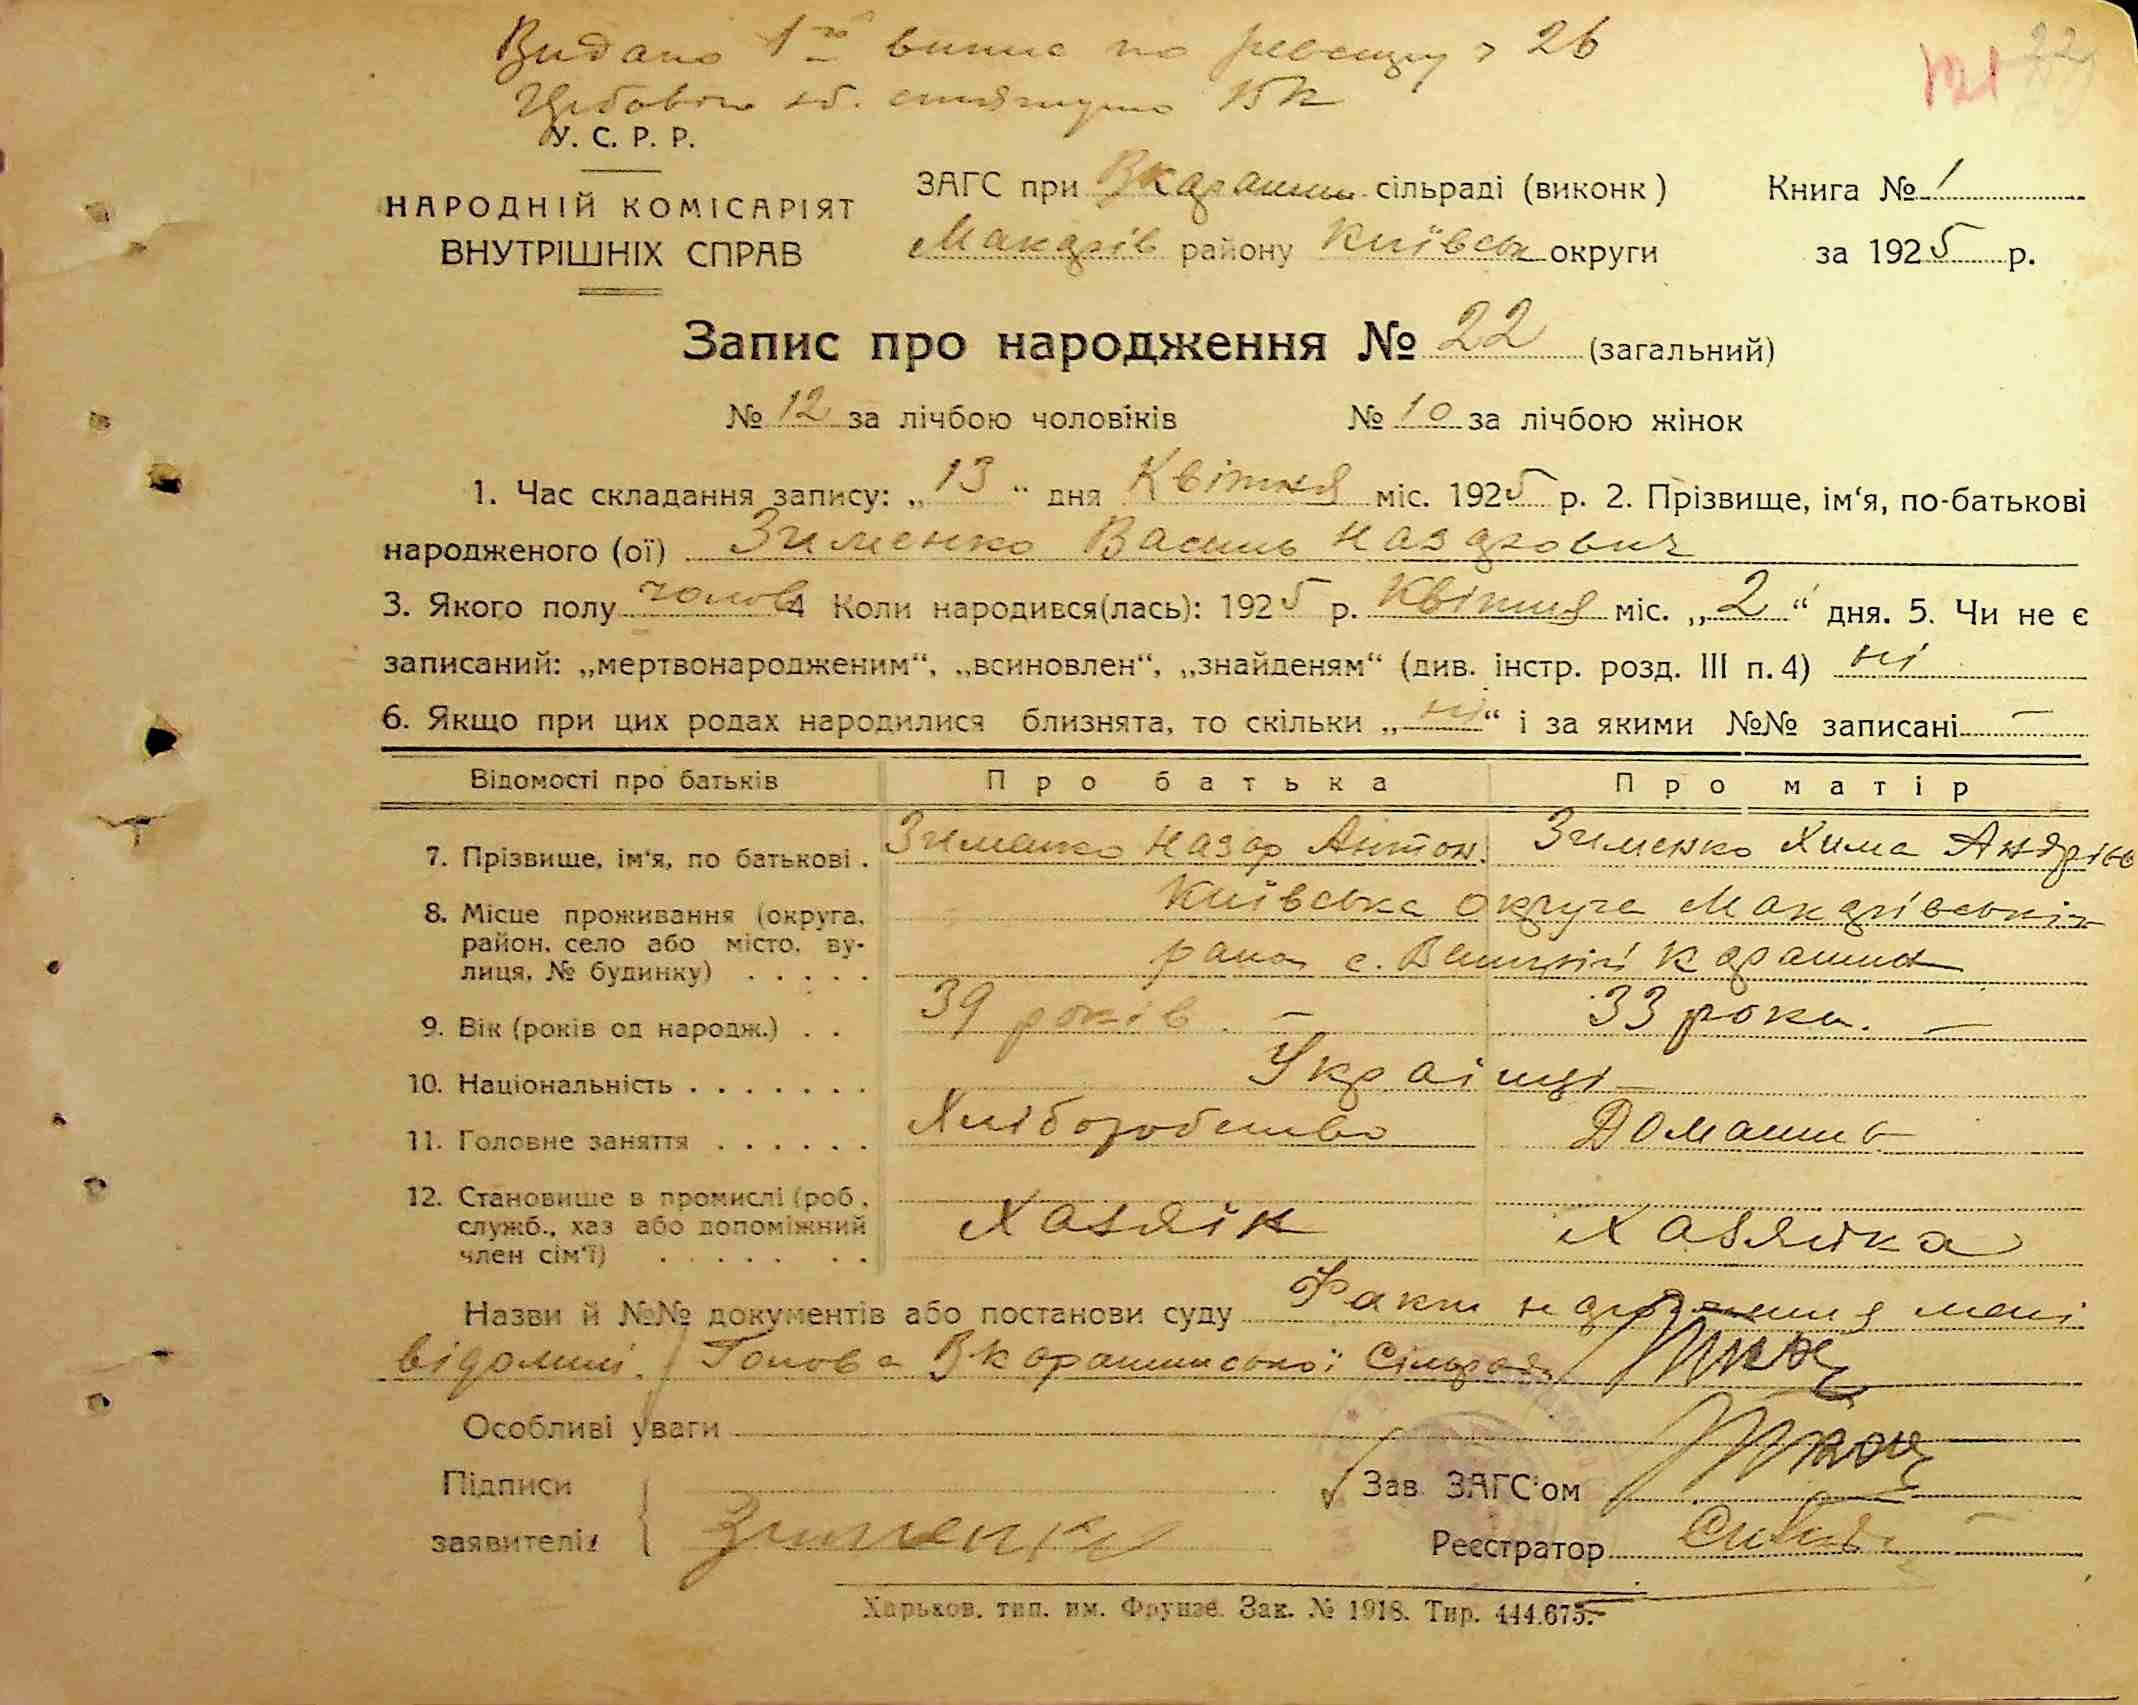 Видано 1го випис по реєстру № 26
стягнуто 15к
121 22
У. С. Р. Р.
НАРОДНІЙ КОМІСАРІЯТ
ВНУТРІШНІХ СПРАВ
ЗАГС при Вкарашин сільраді (виконк) Книга № 1
Макарів району Київськ округи за 1925 р.
Запис про народження № 22 (загальний)
№ 12 за лічбою чоловіків № 10 за лічбою жінок
1. Час складання запису: „13“ дня Квітня міс. 1925 р. 2. Прізвище, ім‘я, по-батькові
народженого (ої) Зименко Василь Назарович
3. Якого полу чолов 4 Коли народився(лась): 1925 р. Квітня міс. „2“ дня. 5. Чи не є
записаний: „мертвонародженим“, „всиновлен“, „знайденям“ (див. інстр. розд. III п. 4) ні
6. Якщо при цих родах народилися близнята, то скільки „ні“ і за якими №№ записані —
Відомості про батьків Про батька Про матір
7. Прізвище, ім‘я, по батькові . Зименко Назар Антон. Зименко Хима Андрієв
8. Місце проживання (округа, Київська округа Макарівський
район, село або місто, ву-
лиця, № будинку) . . . . . район с. Великий Карашин
9. Вік (років од народж.) . . 39 років. — 33 роки. —
10. Національність . . . . . . . Українці —
11. Головне заняття . . . . . . Хліборобство Домашнє
12. Становище в промислі (роб.,
служб., хаз або допоміжний Хазяїн Хазяйка
член сім‘ї) . . . . . . .
Назви й №№ документів або постанови суду Факт народження мені
відомий. Голова Вкарашинської Сільради
Особливі уваги
Підписи Зав. ЗАГС‘ом
заявителів Зименко Реєстратор
Харьков, тип. им. Фрунзе. Зак. № 1918. Тир. 444.675.